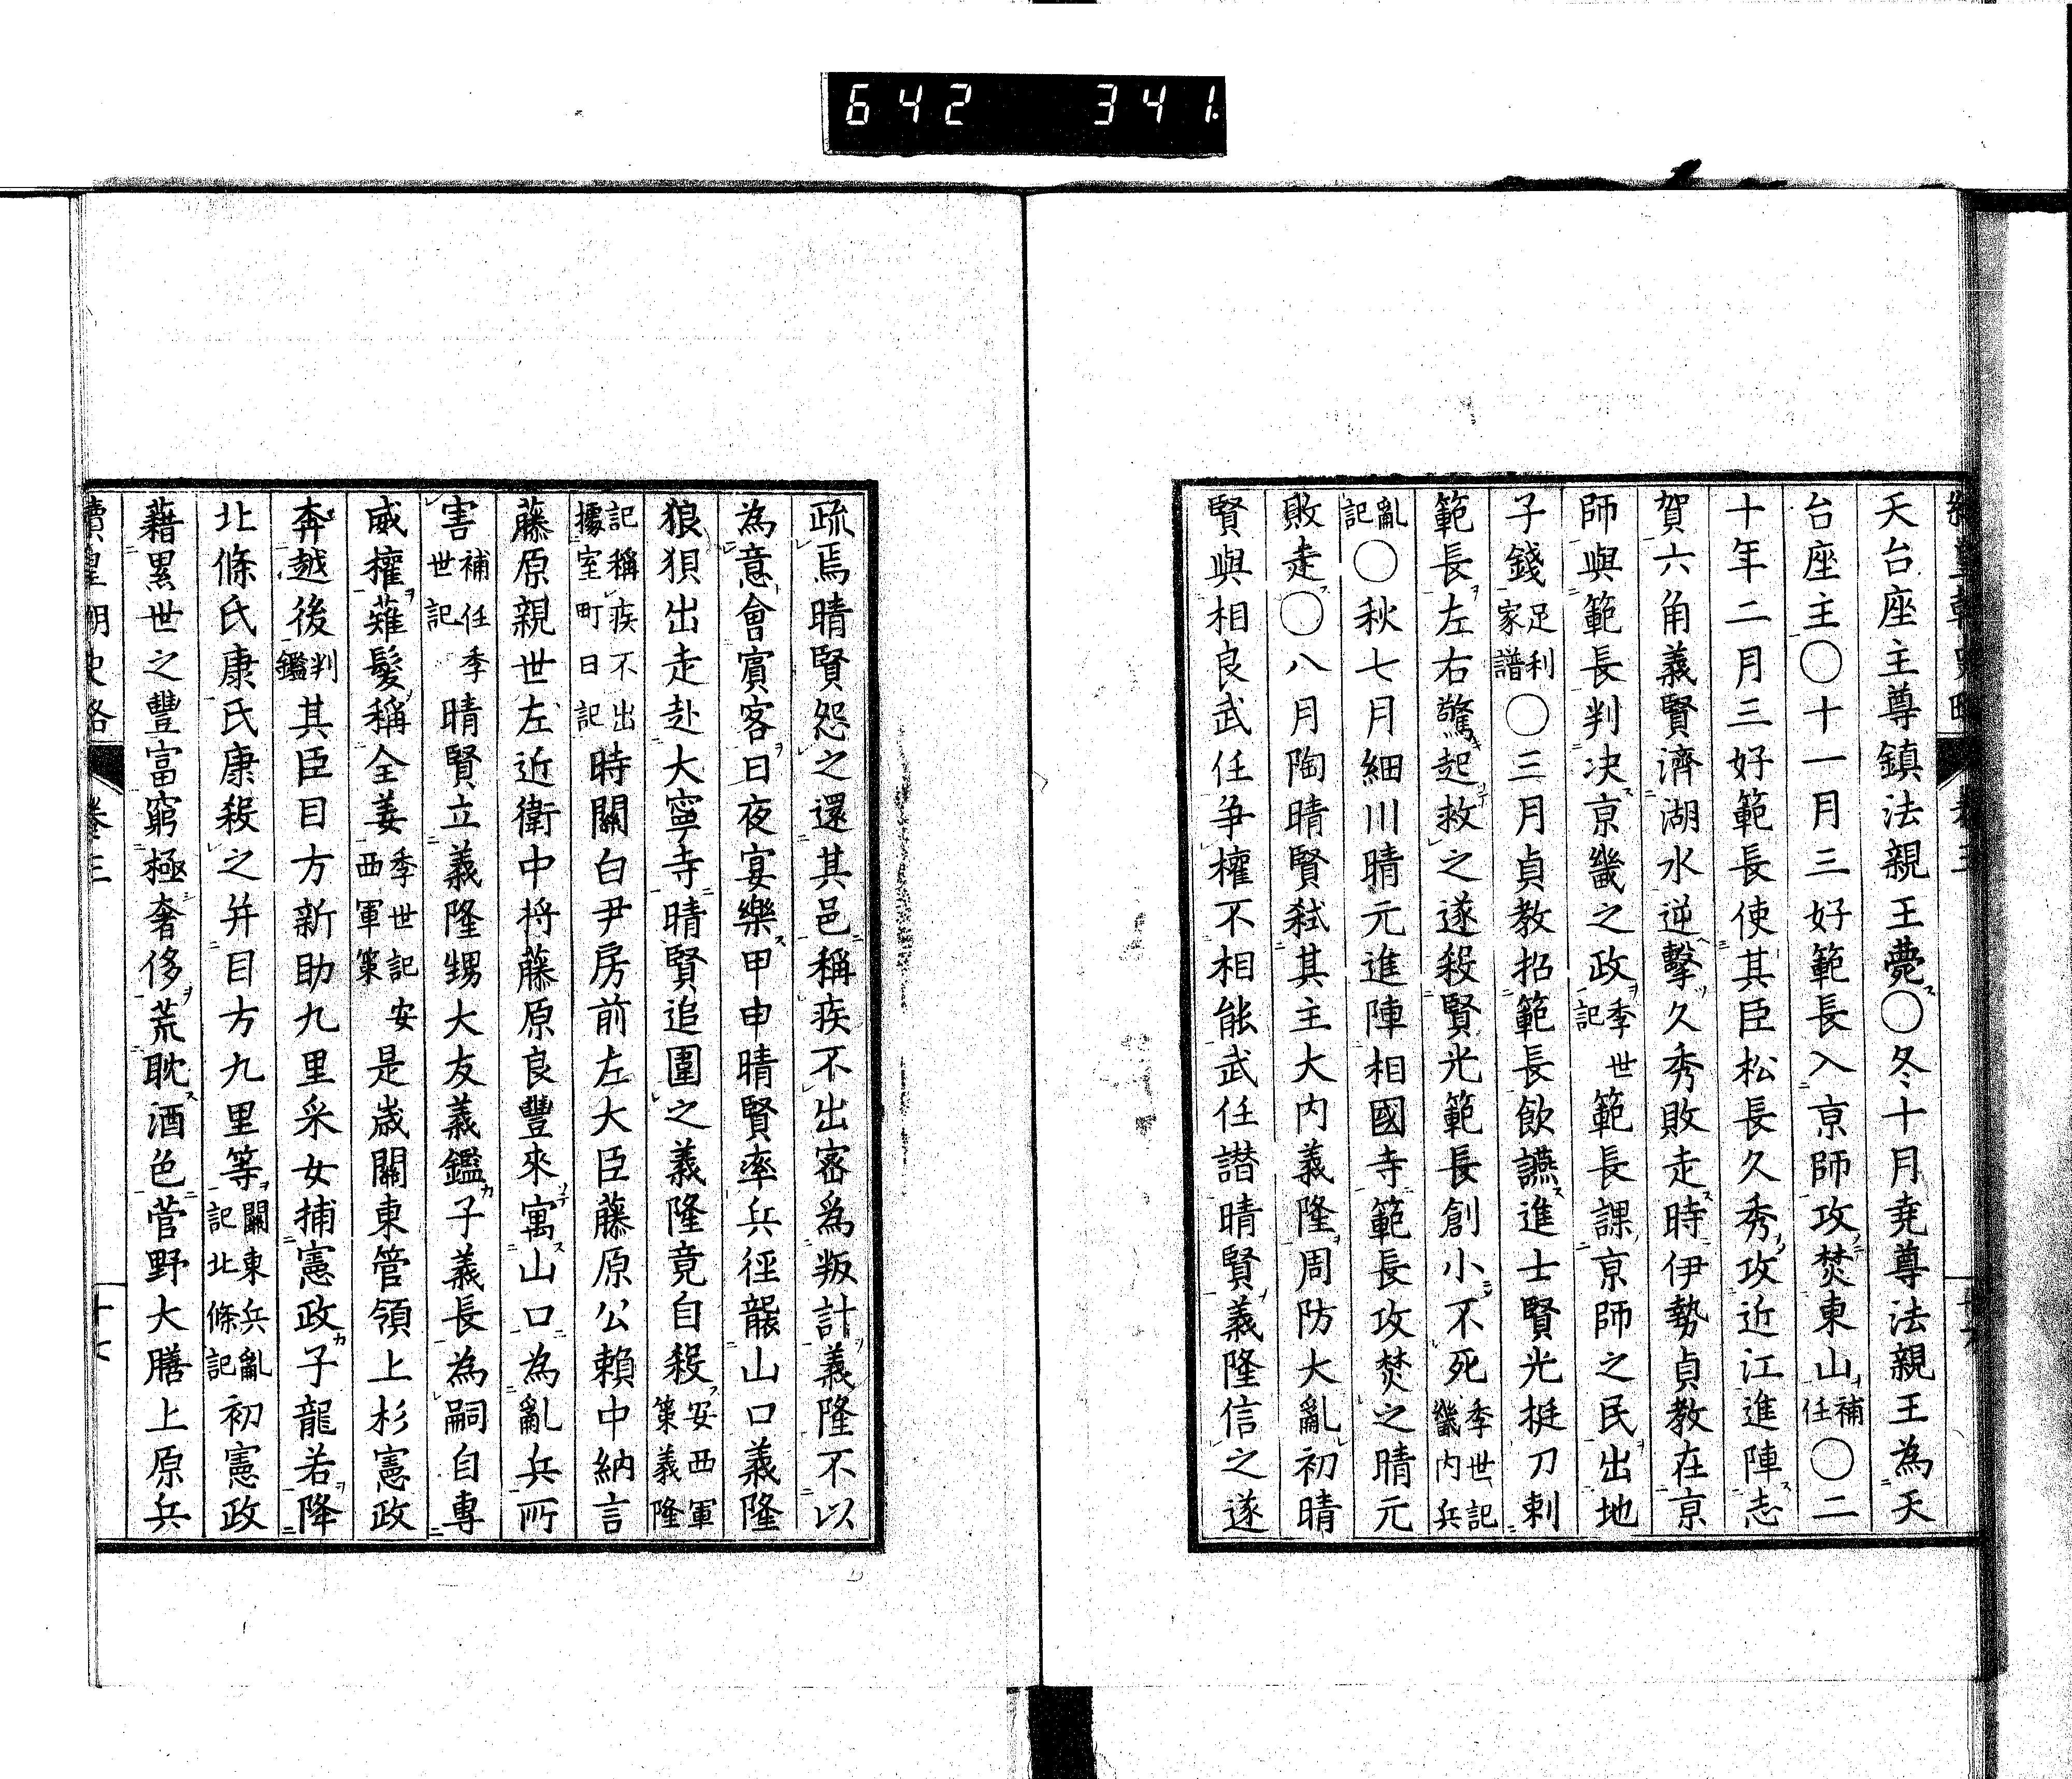 642 341
天台座主尊鎮法親王薨〇冬十月堯尊法親王為天
台座主〇十一月三好範長入京師攻焚東山補任〇二
十年二月三好範長使其臣松長久秀攻近江進陣志
賀六角義賢濟湖水逆擊久秀敗走時伊勢貞教在京
師與範長判决京畿之政季世記範長課京師之民出地
子錢足利家譜〇三月貞教招範長飲讌進士賢光挺刀刺
範長左右驚起救之遂殺賢光範長創小不死季世記畿內兵
亂記〇秋七月細川晴元進陣相國寺範長攻焚之晴元
敗走〇八月陶晴賢弑其主大内義隆周防大亂初晴
賢與相良武任争權不相能武任譖晴賢義隆信之遂
疏焉晴賢怨之還其邑稱疾不出密為叛計義隆不以
為意會賓客日夜宴樂甲申晴賢率兵徑襲山口義隆
狼狽出走赴大寧寺晴賢追圍之義隆竟自殺安西軍策義隆
記稱疾不出據室町日記時關白尹房前左大臣藤原公賴中納言
藤原親世左近衛中将藤原良豐來寓山口為亂兵所
害補任季世記晴賢立義隆甥大友義鑑子義長為嗣自專
威權薙髮稱全姜季世記安西軍策是歳關東管領上杉憲政
奔越後判鑑其臣目方新助九里采女捕憲政子龍若降
北條氏康氏康殺之并目方九里等關東兵亂記北條記初憲政
藉累世之豐富窮極奢侈荒耽酒色菅野大膳上原兵
續皇朝史略 卷三 十七